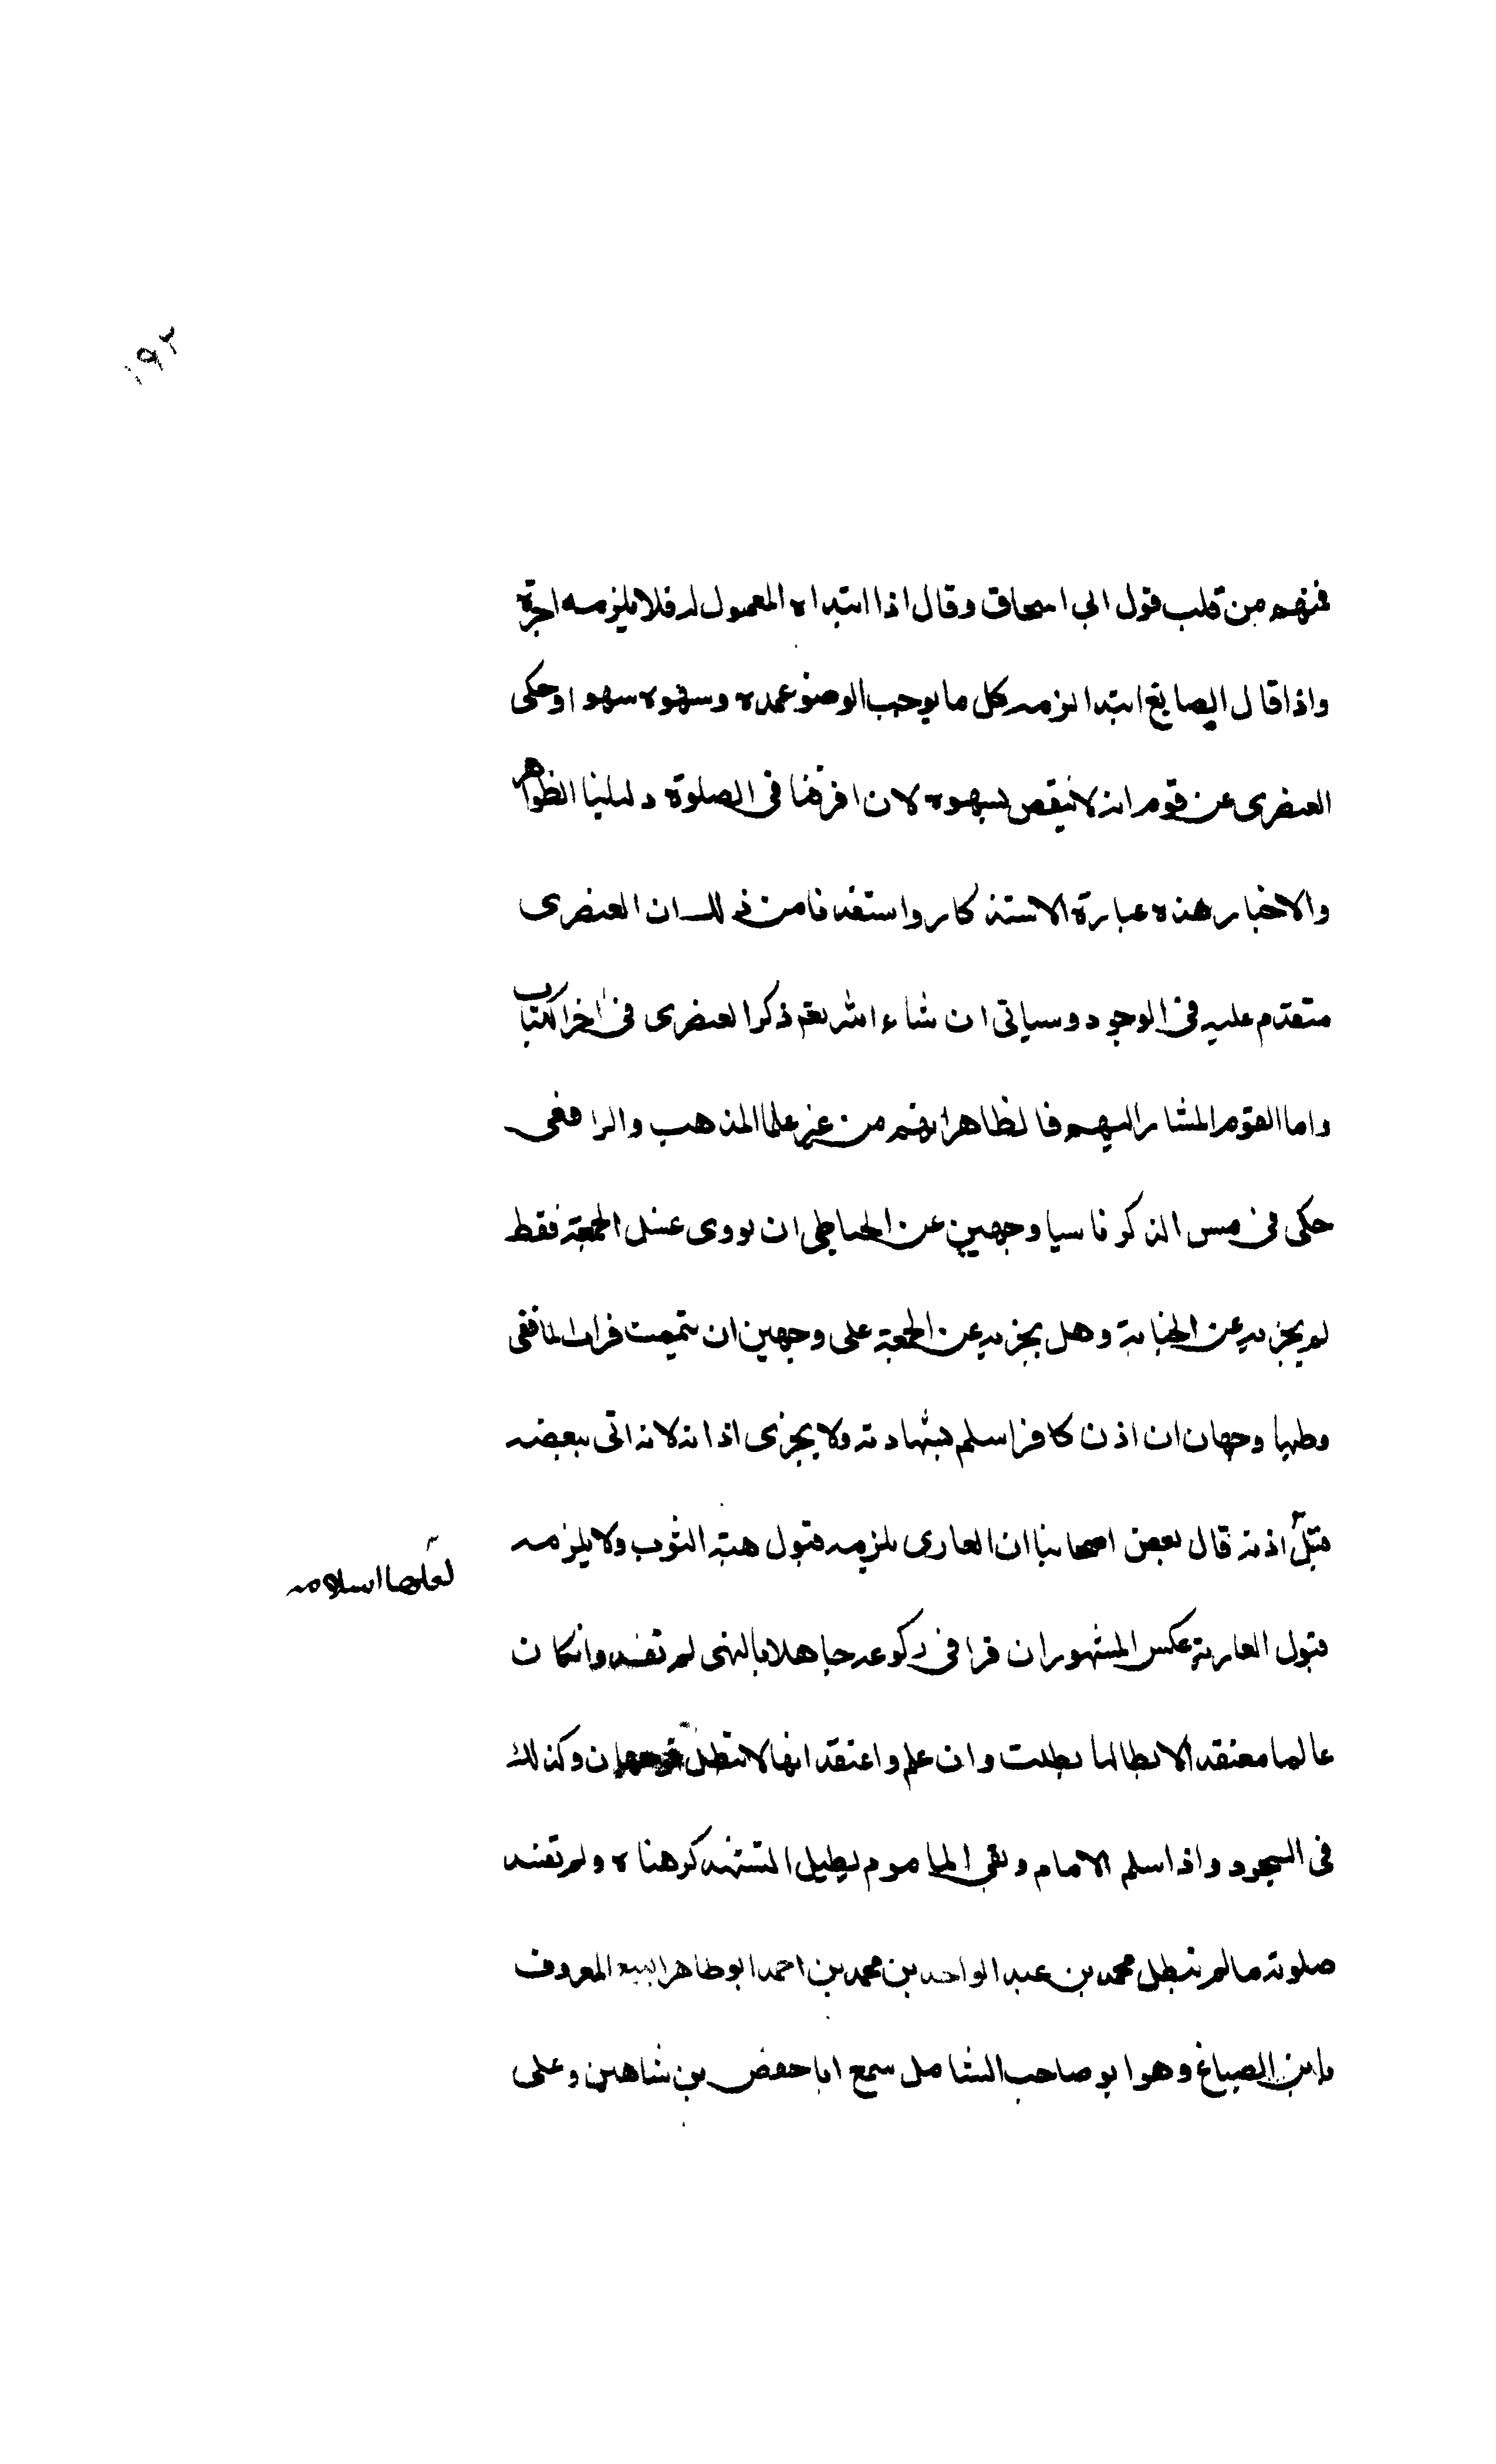 ١٩٢
فمنهم من قلب قول ابي اسحاق وقال اذا ابتداه المعمول له فلا يلزمه اجرة
واذا قال الصايغ ابتدا لزمه كل ما يوجب الوضو عمده وسهوه سهوا وحكى
العنصرى عن قوم انه لا ينقص بسهوه لان افرقنا في الصلوة دليلنا الظواهر
والاخبار هذه عبارة الاستذكار واستفدنا من ذلك ان العنصرى
متقدم عليه في الوجود وسياتى ان شاء الله تعم ذكر العنصرى في اخر الكتاب
واما القوم المشار اليهم فالظاهر انهم من غير علما المذهب والرافعى
حكى في مس الذكر ناسيا وجهين عن الحناطى ان نووى غسل الجمعة فقط
لم يجزيه عن الجنابة وهل يجزيه عن الجمعة على وجهين ان تيممت فرات المافقى
وطيها وجهان ان اذن كافر اسلم بشهادته ولا يجزى اذانه لانه اتى ببعضه
قبل اذنه قال بعض اصحابنا ان العارى يلزمه قبول هبة الثوب ولا يلزمه
لعلها اسلامه
قبول العارية عكس المشهور ان قرا في ركوعه جاهلا بالنهى لم تفسد وان كان
عالما معتقد الابطالها بطلت وان علم واعتقد انها لا تبطل فوجهان وكذلك
في السجود واذا سلم الامام وبقى الماموم يطيل التشهد كرهناه ولم تفسد
صلوته مالم تبطل محمد بن عبد الواحد بن محمد بن احمد ابو طاهر البيع المعروف
بابن الصباغ وهو ابو صاحب الشامل سمع ابا حفص بن شاهين وعلى